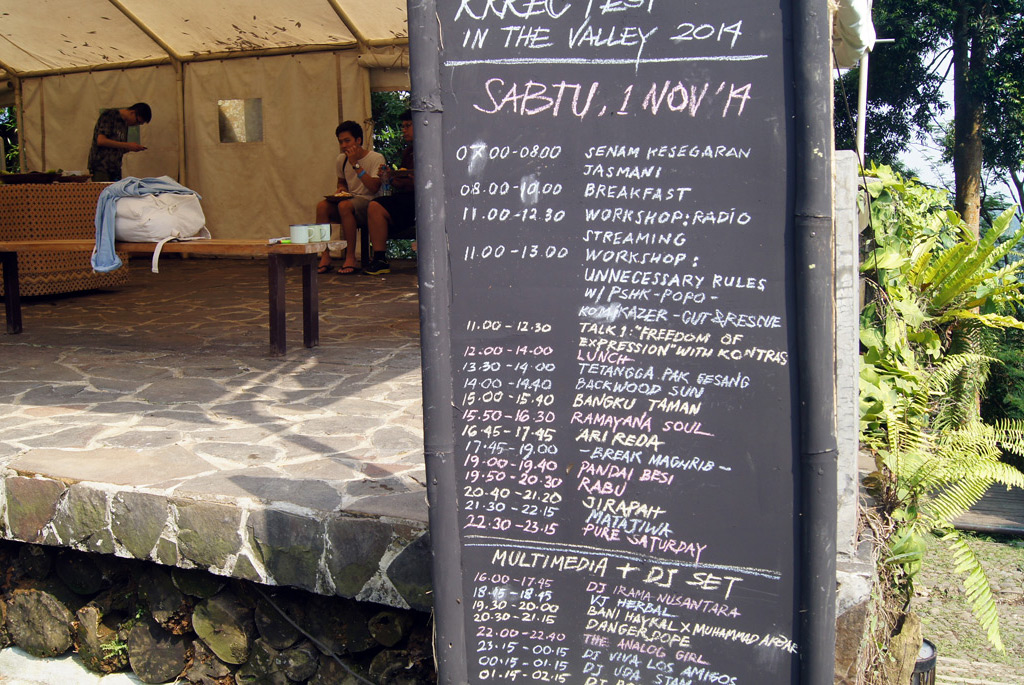 RRREC FEST
IN THE VALLEY 2014
SABTU, 1 NOV '14
07.00-08.00 SENAM KESEGARAN
JASMANI
08.00-10.00 BREAKFAST
11.00-12.30 WORKSHOP: RADIO
STREAMING
11.00-13.00 WORKSHOP:
UNNECESSARY RULES
W/ PSHK-POPO-
KOMIKAZER-CUT&RESCUE
11.00-12.30 TALK 1: "FREEDOM OF
EXPRESSION" WITH KONTRAS
12.00-14.00 LUNCH
13.30-14.00 TETANGGA PAK GESANG
14.00-14.40 BACKWOOD SUN
15.00-15.40 BANGKU TAMAN
15.50-16.30 RAMAYANA SOUL
16.45-17.45 ARI REDA
17.45-19.00 -BREAK MAGHRIB-
19.00-19.40 PANDAI BESI
19.50-20.30 RABU
20.40-21.20 JIRAPAH
21.30-22.15 MATAJIWA
22.30-23.15 PURE SATURDAY
MULTIMEDIA + DJ SET
16.00-17.45 DJ IRAMA NUSANTARA
18.15-18.45 VJ HERBAL
19.30-20.00 BANI HAYKAL X MUHAMMAD
20.30-21.15 DANGERDOPE
22.00-22.40 THE ANALOG GIRL
23.15-00.15 DJ VIVA LOS AMIGOS
00.15-01.15 DJ UDA STAN
01.15-02.15 DJ